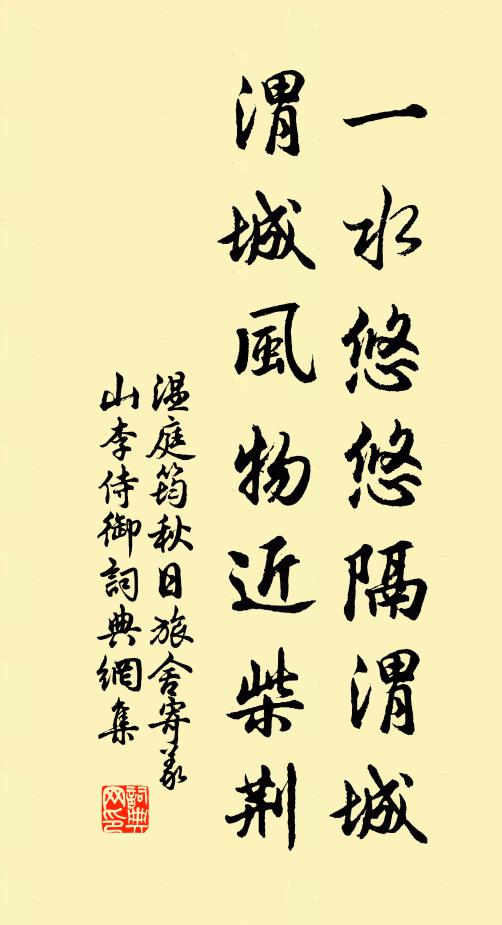 一水悠悠隔渭城
渭城風物近柴荆
温庭筠秋日旅舍寄義
山李侍御詞典網集
詞典網印